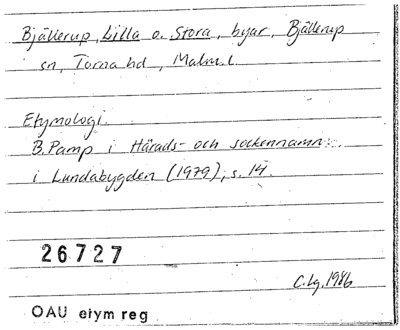 Bjällerup, Lilla o. Stora, byar, Bjällerup
sn, Torna hd, Malm. l.
Etymologi.
B. Pamp i Härads- och sockennamn
i Lundabygden (1979), s. 14.
26727
C. Lg. 1986
OAU etym reg